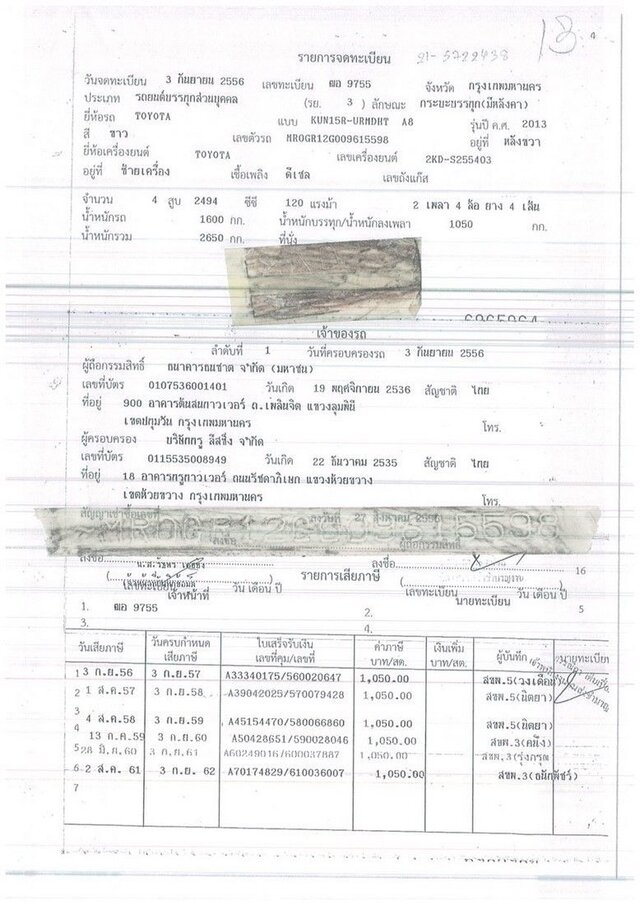 18
รายการจดทะเบียน 21-5722438
วันจดทะเบียน 3 กันยายน 2556 เลขทะเบียน ฒอ 9755 จังหวัด กรุงเทพมหานคร
ประเภท รถยนต์บรรทุกส่วนบุคคล (รย. 3 ) ลักษณะ กระบะบรรทุก(มีหลังคา)
ยี่ห้อรถ TOYOTA แบบ KUN15R-URMDHT A8 รุ่นปี ค.ศ. 2013
สี ขาว เลขตัวรถ MR0GR12G009615598 อยู่ที่ หลังขวา
ยี่ห้อเครื่องยนต์ TOYOTA เลขเครื่องยนต์ 2KD-S255403
อยู่ที่ ซ้ายเครื่อง เชื้อเพลิง ดีเซล เลขถังแก๊ส
จำนวน 4 สูบ 2494 ซีซี 120 แรงม้า 2 เพลา 4 ล้อ ยาง 4 เส้น
น้ำหนักรถ 1600 กก. น้ำหนักบรรทุก/น้ำหนักลงเพลา 1050 กก.
น้ำหนักรวม 2650 กก. ที่นั่ง
เจ้าของรถ
ลำดับที่ 1 วันที่ครอบครองรถ 3 กันยายน 2556
ผู้ถือกรรมสิทธิ์ ธนาคารธนชาต จำกัด (มหาชน)
เลขที่บัตร 0107536001401 วันเกิด 19 พฤศจิกายน 2536 สัญชาติ ไทย
ที่อยู่ 900 อาคารต้นสนทาวเวอร์ ถ.เพลินจิต แขวงลุมพินี
เขตปทุมวัน กรุงเทพมหานคร โทร.
ผู้ครอบครอง บริษัทกรู ลีสซิ่ง จำกัด
เลขที่บัตร 0115535008949 วันเกิด 22 ธันวาคม 2535 สัญชาติ ไทย
ที่อยู่ 18 อาคารกรูทาวเวอร์ ถนนรัชดาภิเษก แขวงห้วยขวาง
เขตห้วยขวาง กรุงเทพมหานคร โทร.
สัญญาเช่าซื้อเลขที่ ลงวันที่ 27 สิงหาคม
ลงชื่อ ผู้ถือกรรมสิทธิ์
ลงชื่อ ลงชื่อ 16
รายการเสียภาษี
เลขทะเบียน เจ้าหน้าที่ วัน เดือน ปี เลขทะเบียน นายทะเบียน วัน เดือน ปี
1. ฒอ 9755 2. 5
3. 4.
วันเสียภาษี วันครบกำหนดเสียภาษี ใบเสร็จรับเงิน เลขที่คุม/เลขที่ ค่าภาษี บาท/สต. เงินเพิ่ม บาท/สต. ผู้บันทึก นายทะเบียน
1 3 ก.ย.56 3 ก.ย.57 A33340175/560020647 1,050.00 สขพ.5(วงเดือน)
2 1 ส.ค.57 3 ก.ย.58 A39042025/570079428 1,050.00 สขพ.5(นิตยา)
3 4 ส.ค.58 3 ก.ย.59 A45154470/580066860 1,050.00 สขพ.5(นิตยา)
4 13 ก.ค.59 3 ก.ย.60 A50428651/590028046 1,050.00 สขพ.3(คนึง)
5 28 มิ.ย.60 3 ก.ย.61 A60249016/600037887 1,050.00 สขพ.3(รุ่งกรุณ
6 2 ส.ค. 61 3 ก.ย. 62 A70174829/610036007 1,050.00 สขพ.3(ธนัทพัชร์)
7